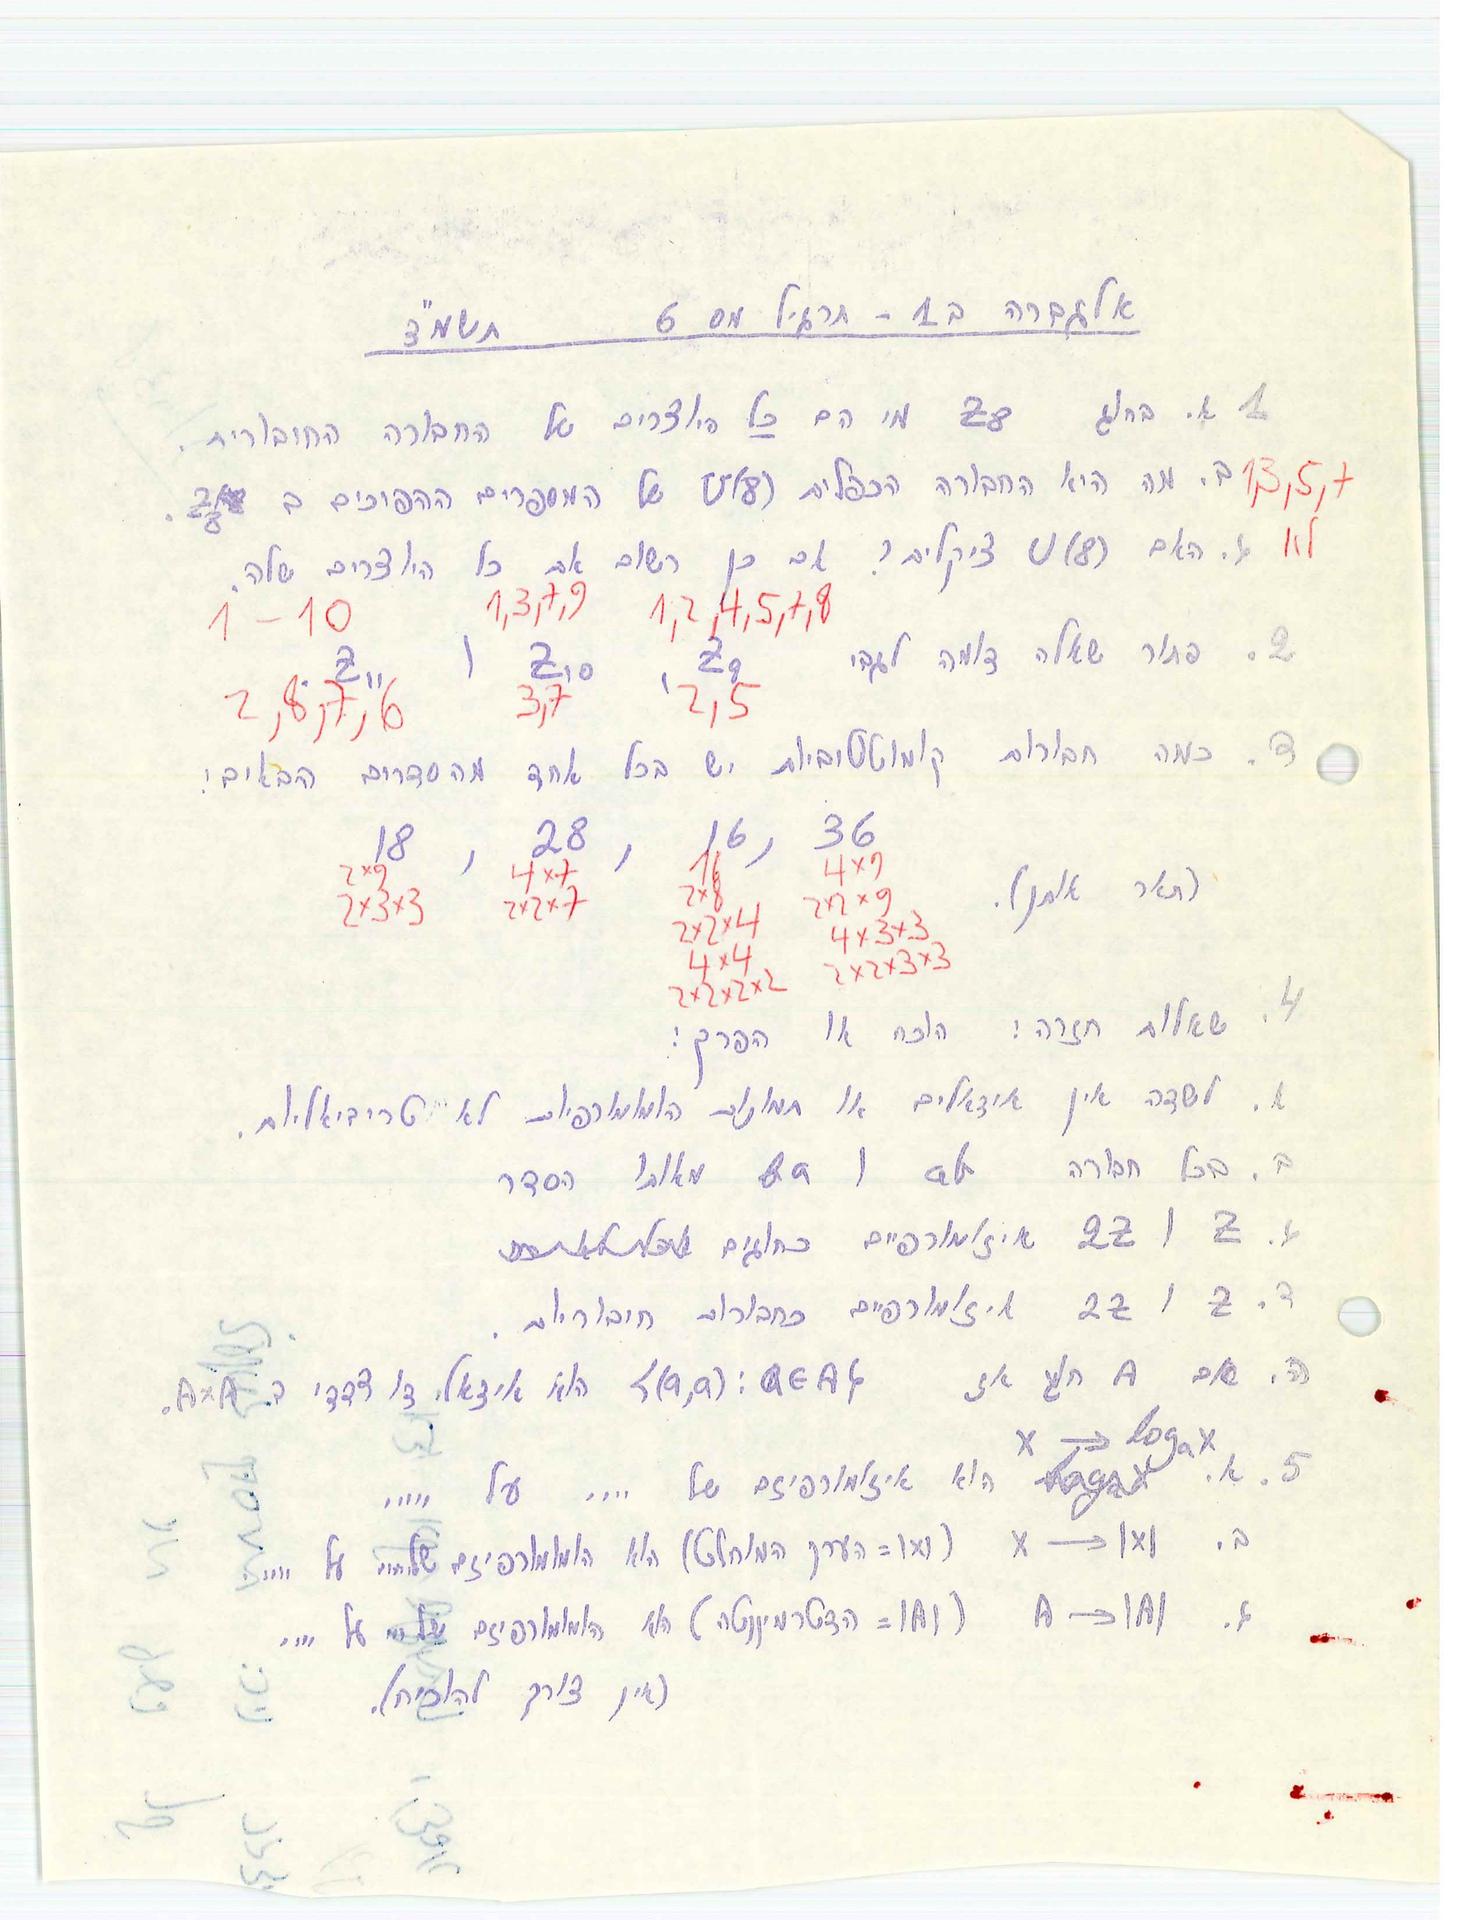 אלגברה ב1 - תרגיל מס 6 תשמ"ד
1 א. בחוג Z8 מי הם כל היוצרים של החבורה החיבורית.
1,3,5,7 ב. מה היא החבורה הכפלית U(8) של המספרים ההפיכים ב Z8.
לא ג. האם U(8) ציקלית? אם כן רשום את כל היוצרים שלה.
1,2,4,5,7,8 1,3,7,9 1-10
2. פתור שאלה דומה לגבי Z9, Z10 ו Z11.
2,5 3,7 2,8,7,6
3. כמה חבורות קומוטטיביות יש בכל אחד מהסדרים הבאים:
36, 16, 28, 18
4×9 16 4×7 2×9
(תאר אותן). 2×2×9 2×8 2×2×7 2×3×3
4×3×3 2×2×4
2×2×3×3 4×4
2×2×2×2
4. שאלות חזרה: הוכח או הפרך:
א. לשדה אין אידאלים או תמונות הומומורפיות לא טריביאליות.
ב. בכל חבורה ab ו ba מאותו הסדר
ג. Z ו 2Z איזומורפיים כחוגים
ד. Z ו 2Z איזומורפיים כחבורות חיבוריות.
ה. אם A חוג אז {(a,a): a∈A} הוא אידאל דו צדדי ב A×A.
x → logax
5. א. הוא איזומורפיזם של .... על .....
ב. x → |x| (|x|= הערך המוחלט) הוא הומומורפיזם של.... על .....
ג. A → |A| (|A|= הדטרמיננטה) הוא הומומורפיזם של .... על ....
(אין צורך להוכיח).